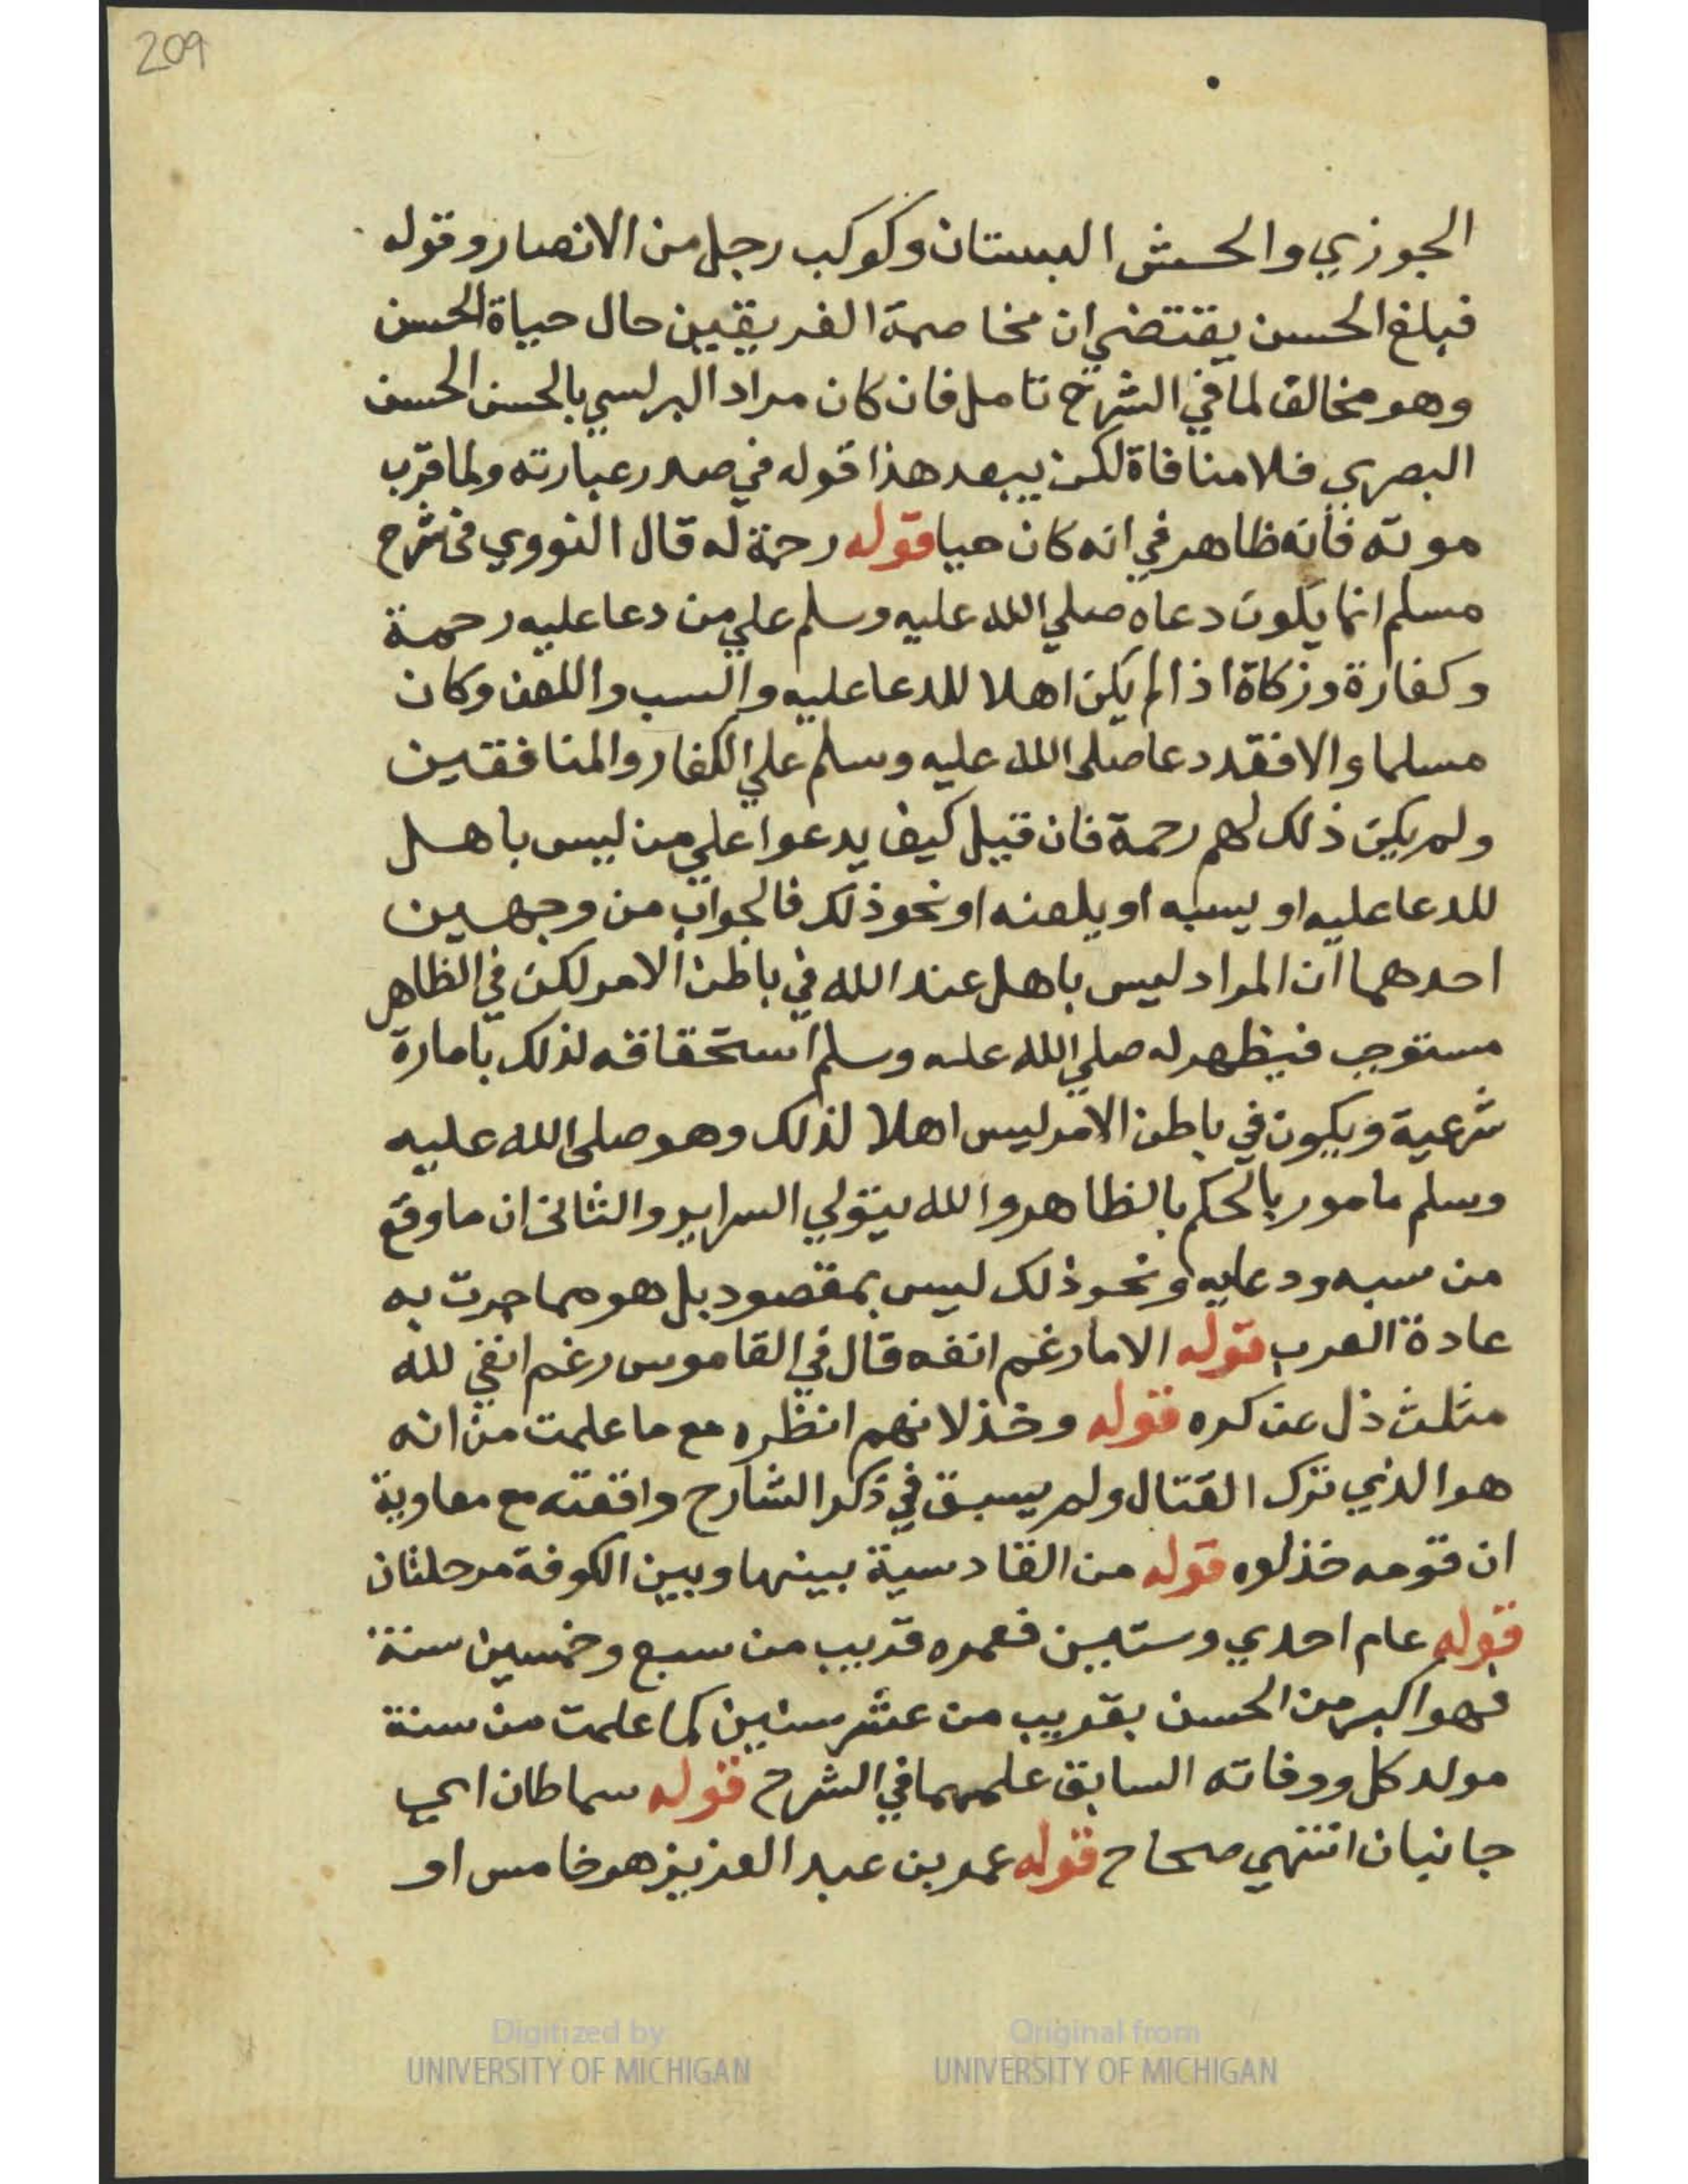 209
الجوزي والحسش البستان وكوكب رجل من الانصار وقوله
فبلغ الحسن يقتضي ان مخاصمة الفريقين حال حياة الحسن
وهو مخالف لما في الشرح تامل فان كان مراد البرلسي بالحسن الحسن
البصري فلا منافاة لكن يبعد هذا قوله في صدر عبارته ولما قرب
موته فانه ظاهر في انه كان حيا قوله رحمة له قال النووي في شرح
مسلم انما يكون دعاه صلي الله عليه وسلم علي من دعا عليه رحمة
وكفارة وزكاة اذا لم يكن اهلا للدعا عليه والسب واللعن وكان
مسلما والا فقد دعا صلي الله عليه وسلم علي الكفار والمنافقين
ولم يكن ذلك لهم رحمة فان قيل كيف يدعوا علي من ليس باهل
للدعا عليه او يسبه او يلعنه او نحو ذلك فالجواب من وجهين
احدهما ان المراد ليس باهل عند الله في باطن الامر لكن في الظاهر
مستوجب فيظهر له صلي الله عليه وسلم استحقاقه لذلك بامارة
شرعية ويكون في باطن الامر ليس اهلا لذلك وهو صلي الله عليه
وسلم مامور بالحكم بالظاهر والله يتولي السراير والثاني ان ما وقع
من سبه ودعايه ونحو ذلك ليس بمقصود بل هو مما جرت به
عادة العرب قوله الاما رغم انفه قال في القاموس رغم انفي لله
مثلث ذل عن كره قوله وخذلانهم انظره مع ما علمت من انه
هو الذي ترك القتال ولم يسبق في ذكر الشارح واقعته مع معاوية
ان قومه خذلوه قوله من القادسية بينها وبين الكوفة مرحلتان
قوله عام احدي وستين فعمره قريب من سبع وخمسين سنة
فهو اكبر من الحسن بقريب من عشر سنين كما علمت من سنة
مولد كل ووفاته السابق علمهما في الشرح قوله سماطان اي
جانبان انتهي صحاح قوله عمر بن عبد العزيز هو خامس او
Digitized by
UNIVERSITY OF MICHIGAN
Original from
UNIVERSITY OF MICHIGAN